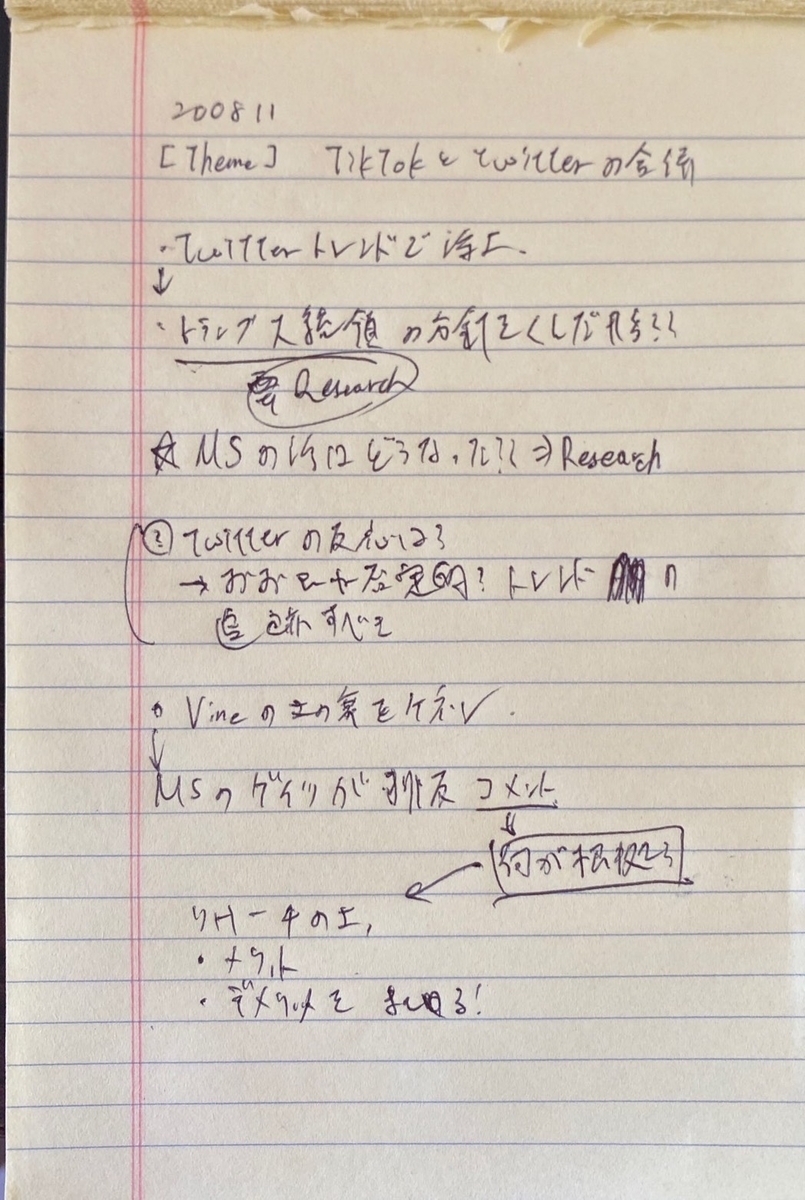 200811
[Theme] TikTokとtwitterの合併
・Twitterトレンドで浮上.
↓
・トランプ大統領の方針をくんだ形??
要Research
☆ MSの件はどうなった?? ⇒ Research
② twitterの反応は?
→ おおむね否定的? トレンドの
追求すべき
・Vineの二の舞をケネン.
↓
MSのゲイツが コメント
↓
何が根拠?
リサーチの上,
・メリット
・デメリットを まとめる!